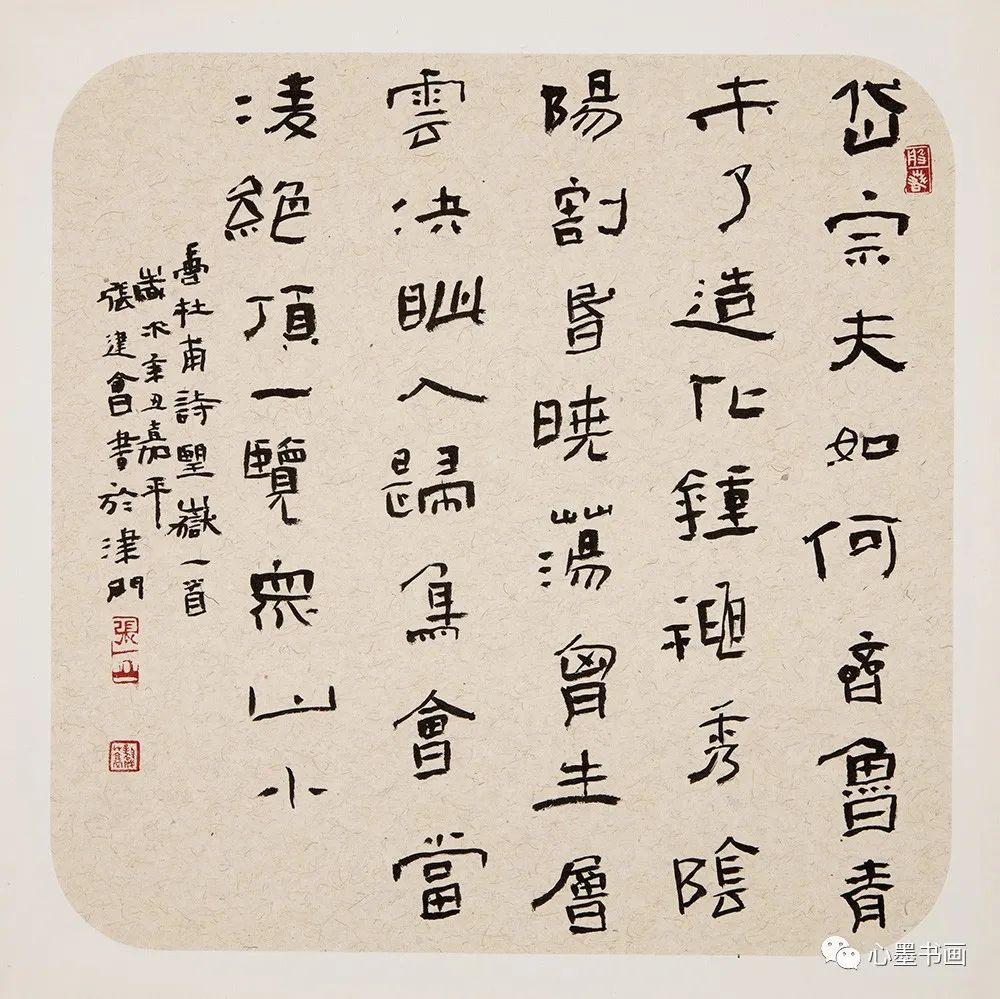 岱宗夫如何齊魯青
未了造化鍾神秀陰
陽割昬曉蕩胷生層
雲決眦入歸鳥會當
淩絕頂一覽眾山小
杜甫詩望嶽一首
歲次辛丑嘉平
張建會書於津門
心墨书画